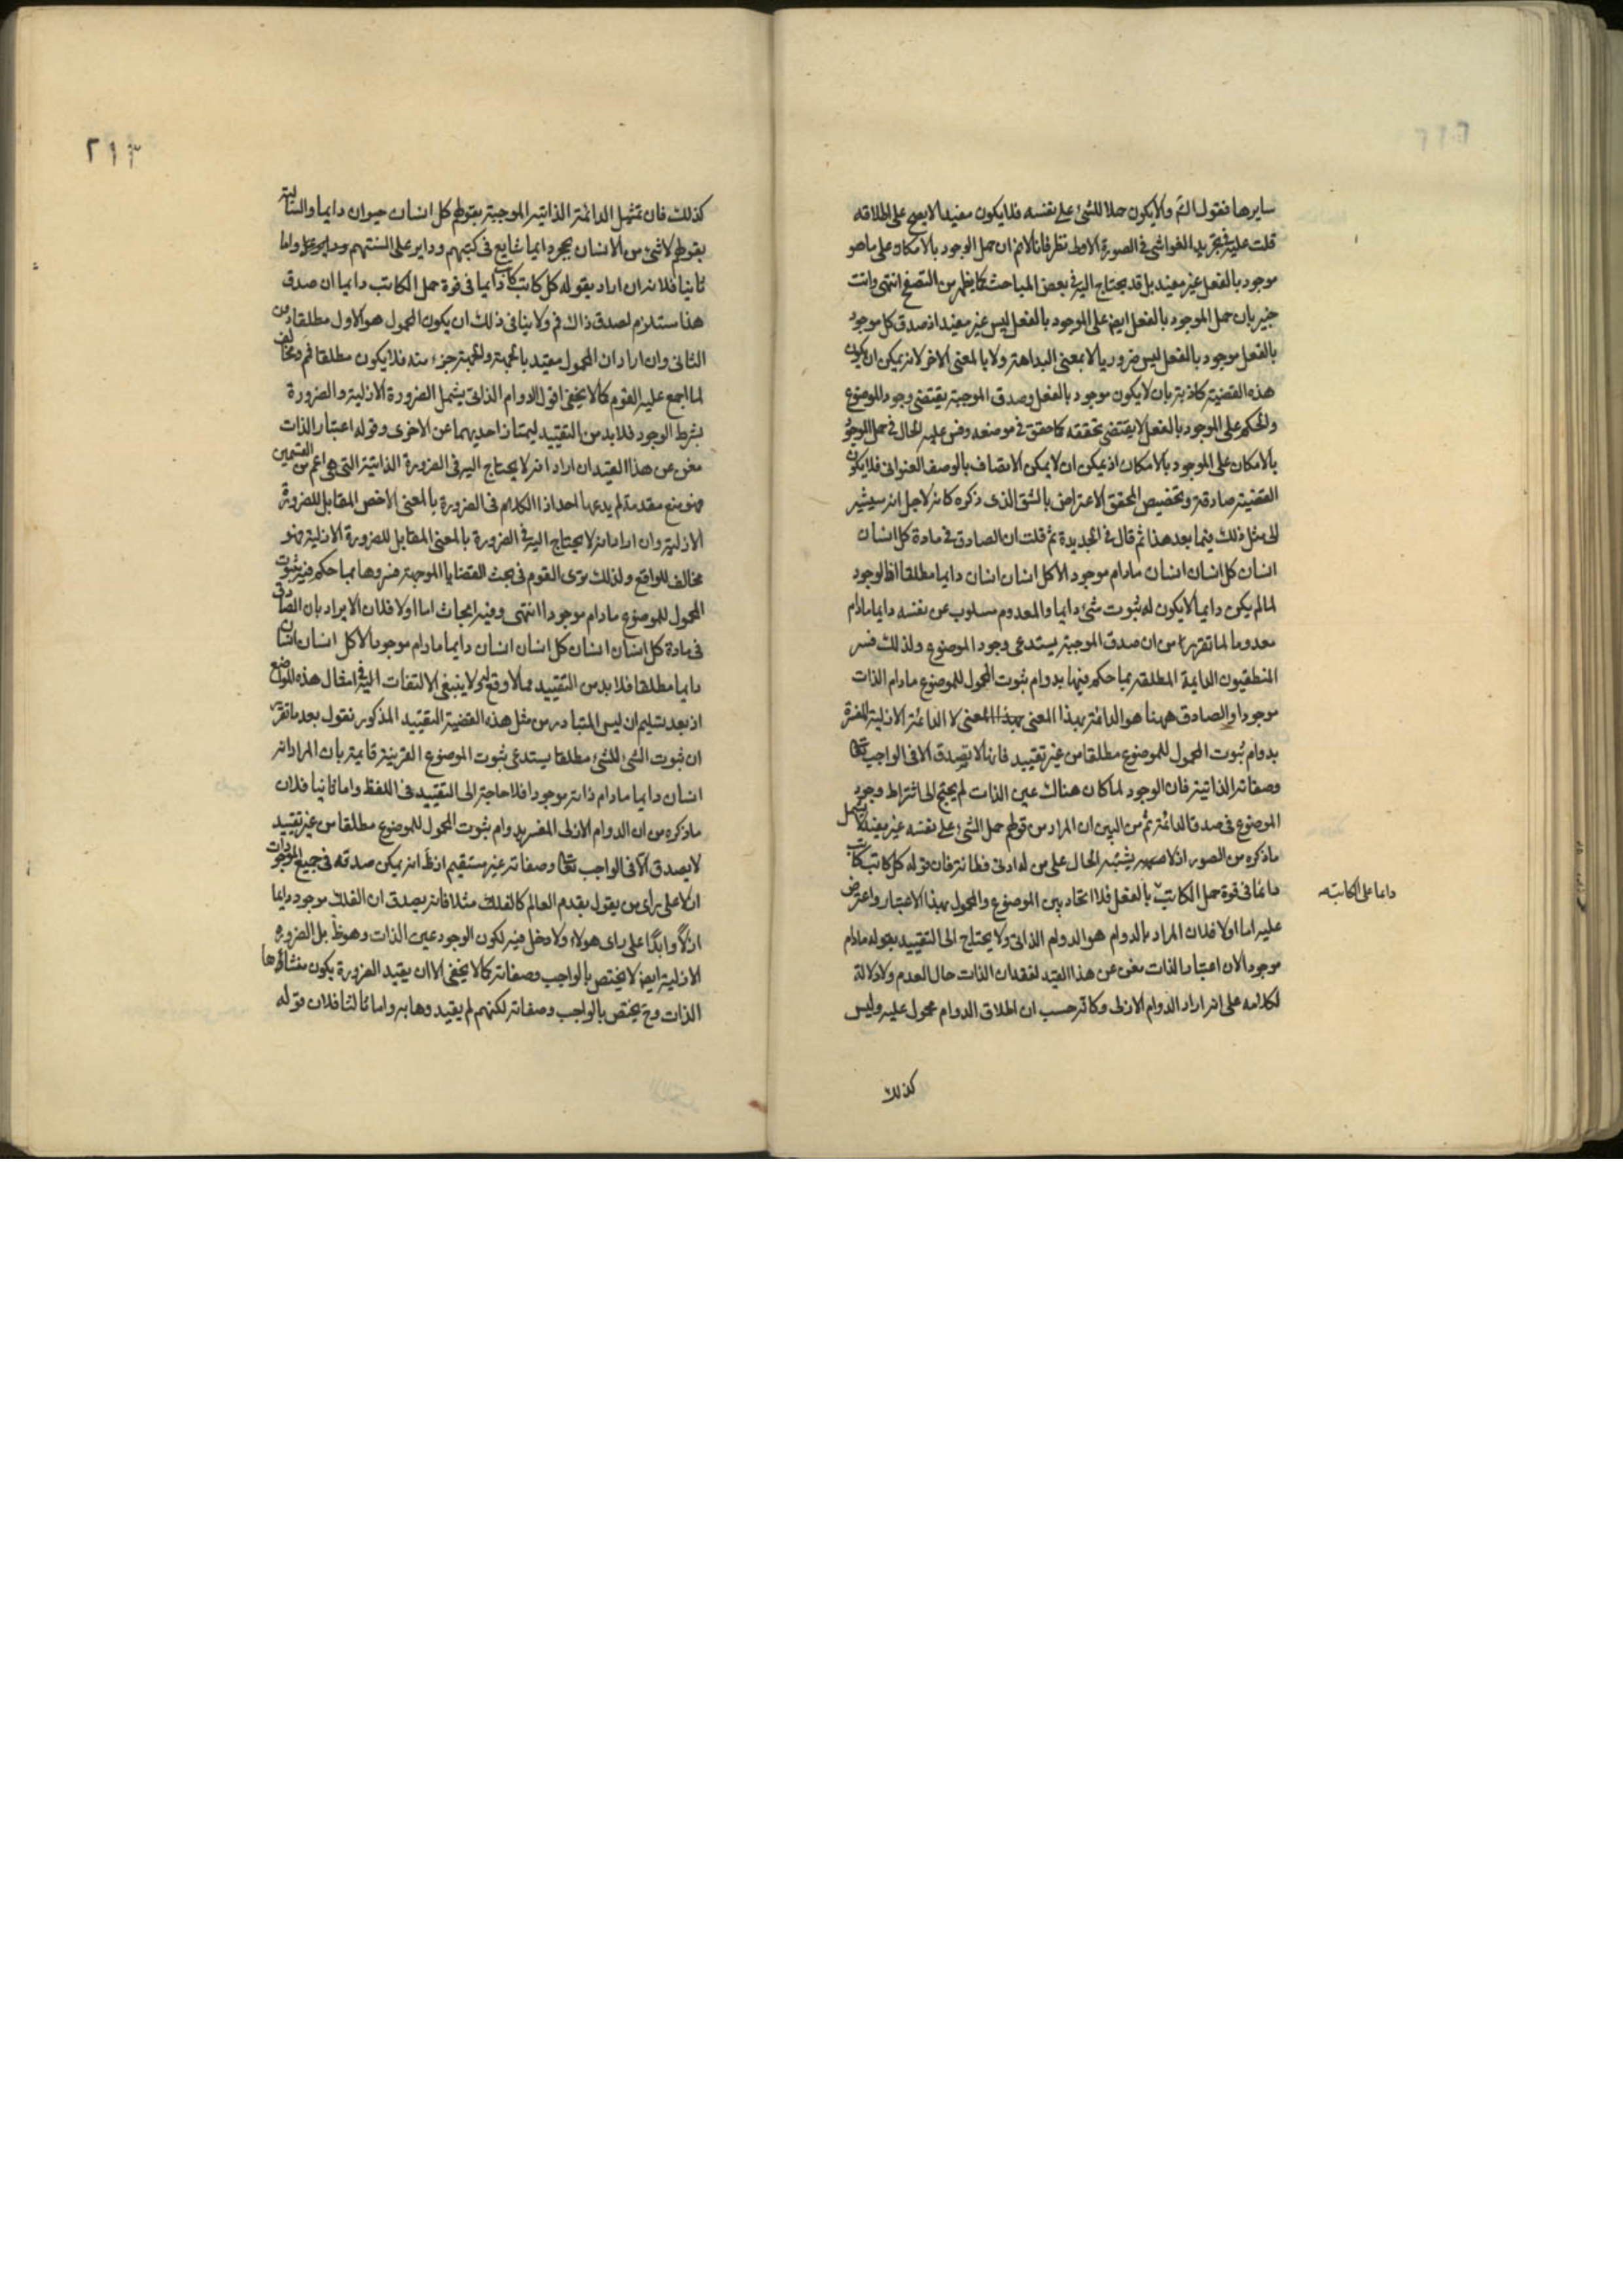 سايرها فنقول الثم والا يكون حملا للشئ على نفسه فلا يكون مفيدا لا يصح على اطلاقه
قلت عليه في تجريد الغواشي في الصورة الاولى نظر فانا لانم ان حمل الوجود بالامكان على ما هو
موجود بالفعل غير مفيد بل قد يحتاج اليه في بعض المباحث كما يظهر من التصفح انتهى وانت
خبير بان حمل الموجود بالفعل ايض على الموجود بالفعل ليس غير مفيد اذ صدق كل موجود
بالفعل موجود بالفعل ليس ضروريا لا بمعنى البداهة ولا بالمعنى الاخر لانه يمكن ان يكون
هذه القضية كاذبة بان لا يكون موجود بالفعل وصدق الموجبة يقتضى وجود الموضوع
والحكم على الموجود بالفعل لا يقتضى تحققه كما حقق في موضعه وقس عليه الحال في حمل الموجود
بالامكان على الموجود بالامكان اذ يمكن ان لا يمكن الاتصاف بالوصف العنوانى فلا يكون
القضية صادقة وتخصيص المحقق الاعتراض بالشق الذى ذكره كانه لاجل انه سيشير
الى مثل ذلك فيما بعد هذا ثم قال في الجديدة ثم قلت ان الصادق في مادة كل انسان
انسان كل انسان انسان مادام موجودا لا كل انسان انسان دايما مطلقا اذ الوجود
لما لم يكن دايما لا يكون له ثبوت شئ دايما والمعدوم مسلوب عن نفسه دايما مادام
معدوما لما تقرر من ان صدق الموجبة يستدعى وجود الموضوع ولذلك فسر
المنطقيون الدايمة المطلقة بما حكم فيها بدوام ثبوت المحمول للموضوع مادام الذات
موجودا والصادق ههنا هو الدائمة بهذا المعنى لا الدائمة الازلية المفسرة
بدوام ثبوت المحمول للموضوع مطلقا من غير تقييد فانها لا تصدق الا في الواجب تعالى
وصفاته الذاتية فان الوجود لما كان هناك عين الذات لم يحتج الى اشتراط وجود
الموضوع في صدق الدائمة ثم من البين ان المراد من قولهم حمل الشئ على نفسه غير مفيد لا يشمل
ما ذكره من الصور اذ لا يشتبه الحال على من له ادنى فطانة فان قوله كل كاتب كاتب
دائما في قوة حمل الكاتب بالفعل فلا اتحاد بين الموضوع والمحمول بهذا الاعتبار واعترض
دائما على الكاتب
عليه اما اولا فلان المراد بالدوام هو الدوام الذاتى ولا يحتاج الى التقييد بقوله مادام
موجودا لان اعتبار الذات مغن عن هذا القيد لفقدان الذات حال العدم ولا دلالة
لكلامه على انه اراد الدوام الازلى وكانه حسب ان اطلاق الدوام محمول عليه وليس
كذلك
٢١٣
كذلك فان تمثيل الدائمة الذاتية الموجبة بقولهم كل انسان حيوان دايما والسالبة
بقولهم لا شئ من الانسان بحجر دايما شايع في كتبهم وداير على السنتهم واما
ثانيا فلانه ان اراد بقوله كل كاتب كاتب دايما في قوة حمل الكاتب دايما ان صدق
هذا مستلزم لصدق ذاك فم ولا ينافى ذلك ان يكون المحمول هو الاول مطلقا دون
الثانى وان اراد ان المحمول مقيد بالجهة والجهة جزء منه فلا يكون مطلقا فم ومخالف
لما اجمع عليه القوم كما لا يخفى اقول الدوام الذاتى يشمل الضرورة الازلية والضرورة
بشرط الوجود فلا بد من التقييد ليمتاز احديهما عن الاخرى وقوله اعتبار الذات
مغن عن هذا القيد ان اراد انه لا يحتاج اليه في الضرورة الذاتية التى هى اعم من القسمين
فهو منع مقدمة لم يدعها احد اذ الكلام في الضرورة بالمعنى الاخص المقابل للضرورة
الازلية وان اراد انه لا يحتاج اليه في الضرورة بالمعنى المقابل للضرورة الازلية فهو
مخالف للواقع ولذلك ترى القوم في بحث القضايا الموجهة فسروها بما حكم فيه بثبوت
المحمول للموضوع مادام موجودا انتهى وفيه ابحاث اما اولا فلان الايراد بان الصادق
في مادة كل انسان انسان كل انسان انسان دايما مادام موجودا لا كل انسان انسان
دايما مطلقا فلا بد من التقييد مما لا وقع له ولا ينبغى الالتفات اليه في امثال هذه المواضع
اذ بعد تسليم ان ليس المتبادر من مثل هذه القضية التقييد المذكور نقول بعد ما تقرر
ان ثبوت الشئ للشئ مطلقا يستدعى ثبوت الموضوع القرينة قايمة بان المراد انه
انسان دايما مادام ذاته موجودا فلا حاجة الى التقييد في اللفظ واما ثانيا فلان
ما ذكره من ان الدوام الازلى المفسر بدوام ثبوت المحمول للموضوع مطلقا من غير تقييد
لا يصدق الا في الواجب تعالى وصفاته غير مستقيم اذ ظ انه يمكن صدقه في جميع الموجودات
ازلا على راى من يقول بقدم العالم كالفلك مثلا فانه يصدق ان الفلك موجود دايما
ازلا وابدا على راى هولاء ولا دخل فيه لكون الوجود عين الذات وهو ظ بل الضرورة
الازلية ايض لا يختص بالواجب وصفاته كما لا يخفى الا ان يقيد الضرورة بكون منشاؤها
الذات وح يختص بالواجب وصفاته لكنهم لم يقيدوها به واما ثالثا فلان قوله